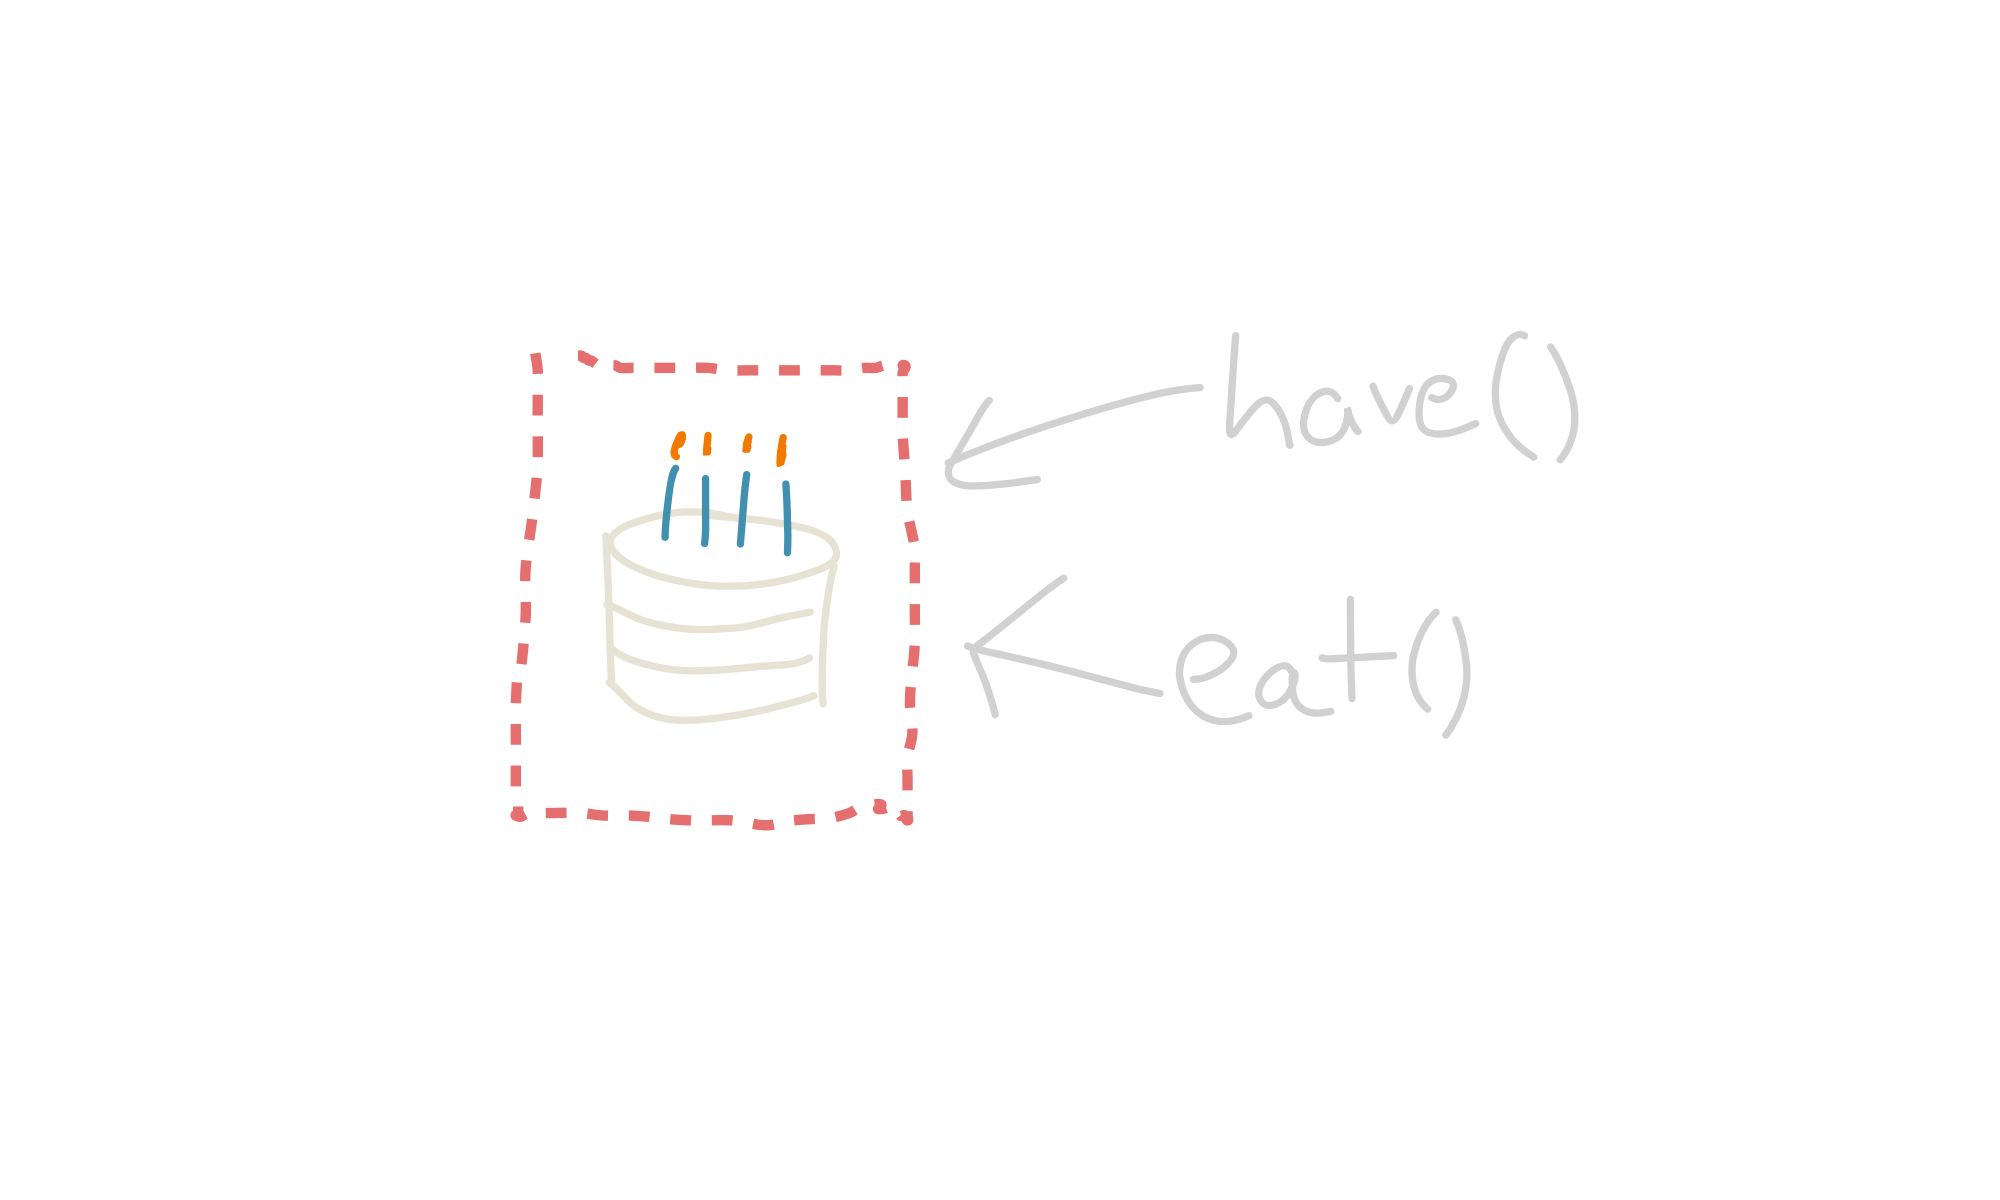 have()
eat()